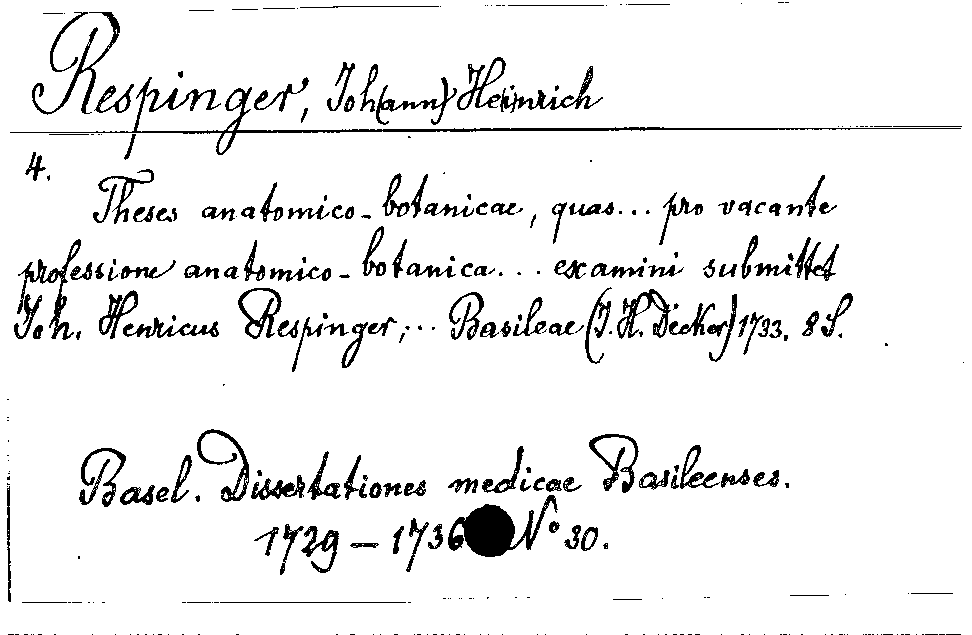 Respinger, Joh(ann) Heinrich
4.
Theses anatomico-botanicae, quas... pro vacante
professione anatomico-botanica... examini submittet
Joh. Henricus Respinger,... Basileae (J. H. Decker) 1733. 8 S.
Basel. Dissertationes medicae Basileenses.
1729 – 1736 N° 30.